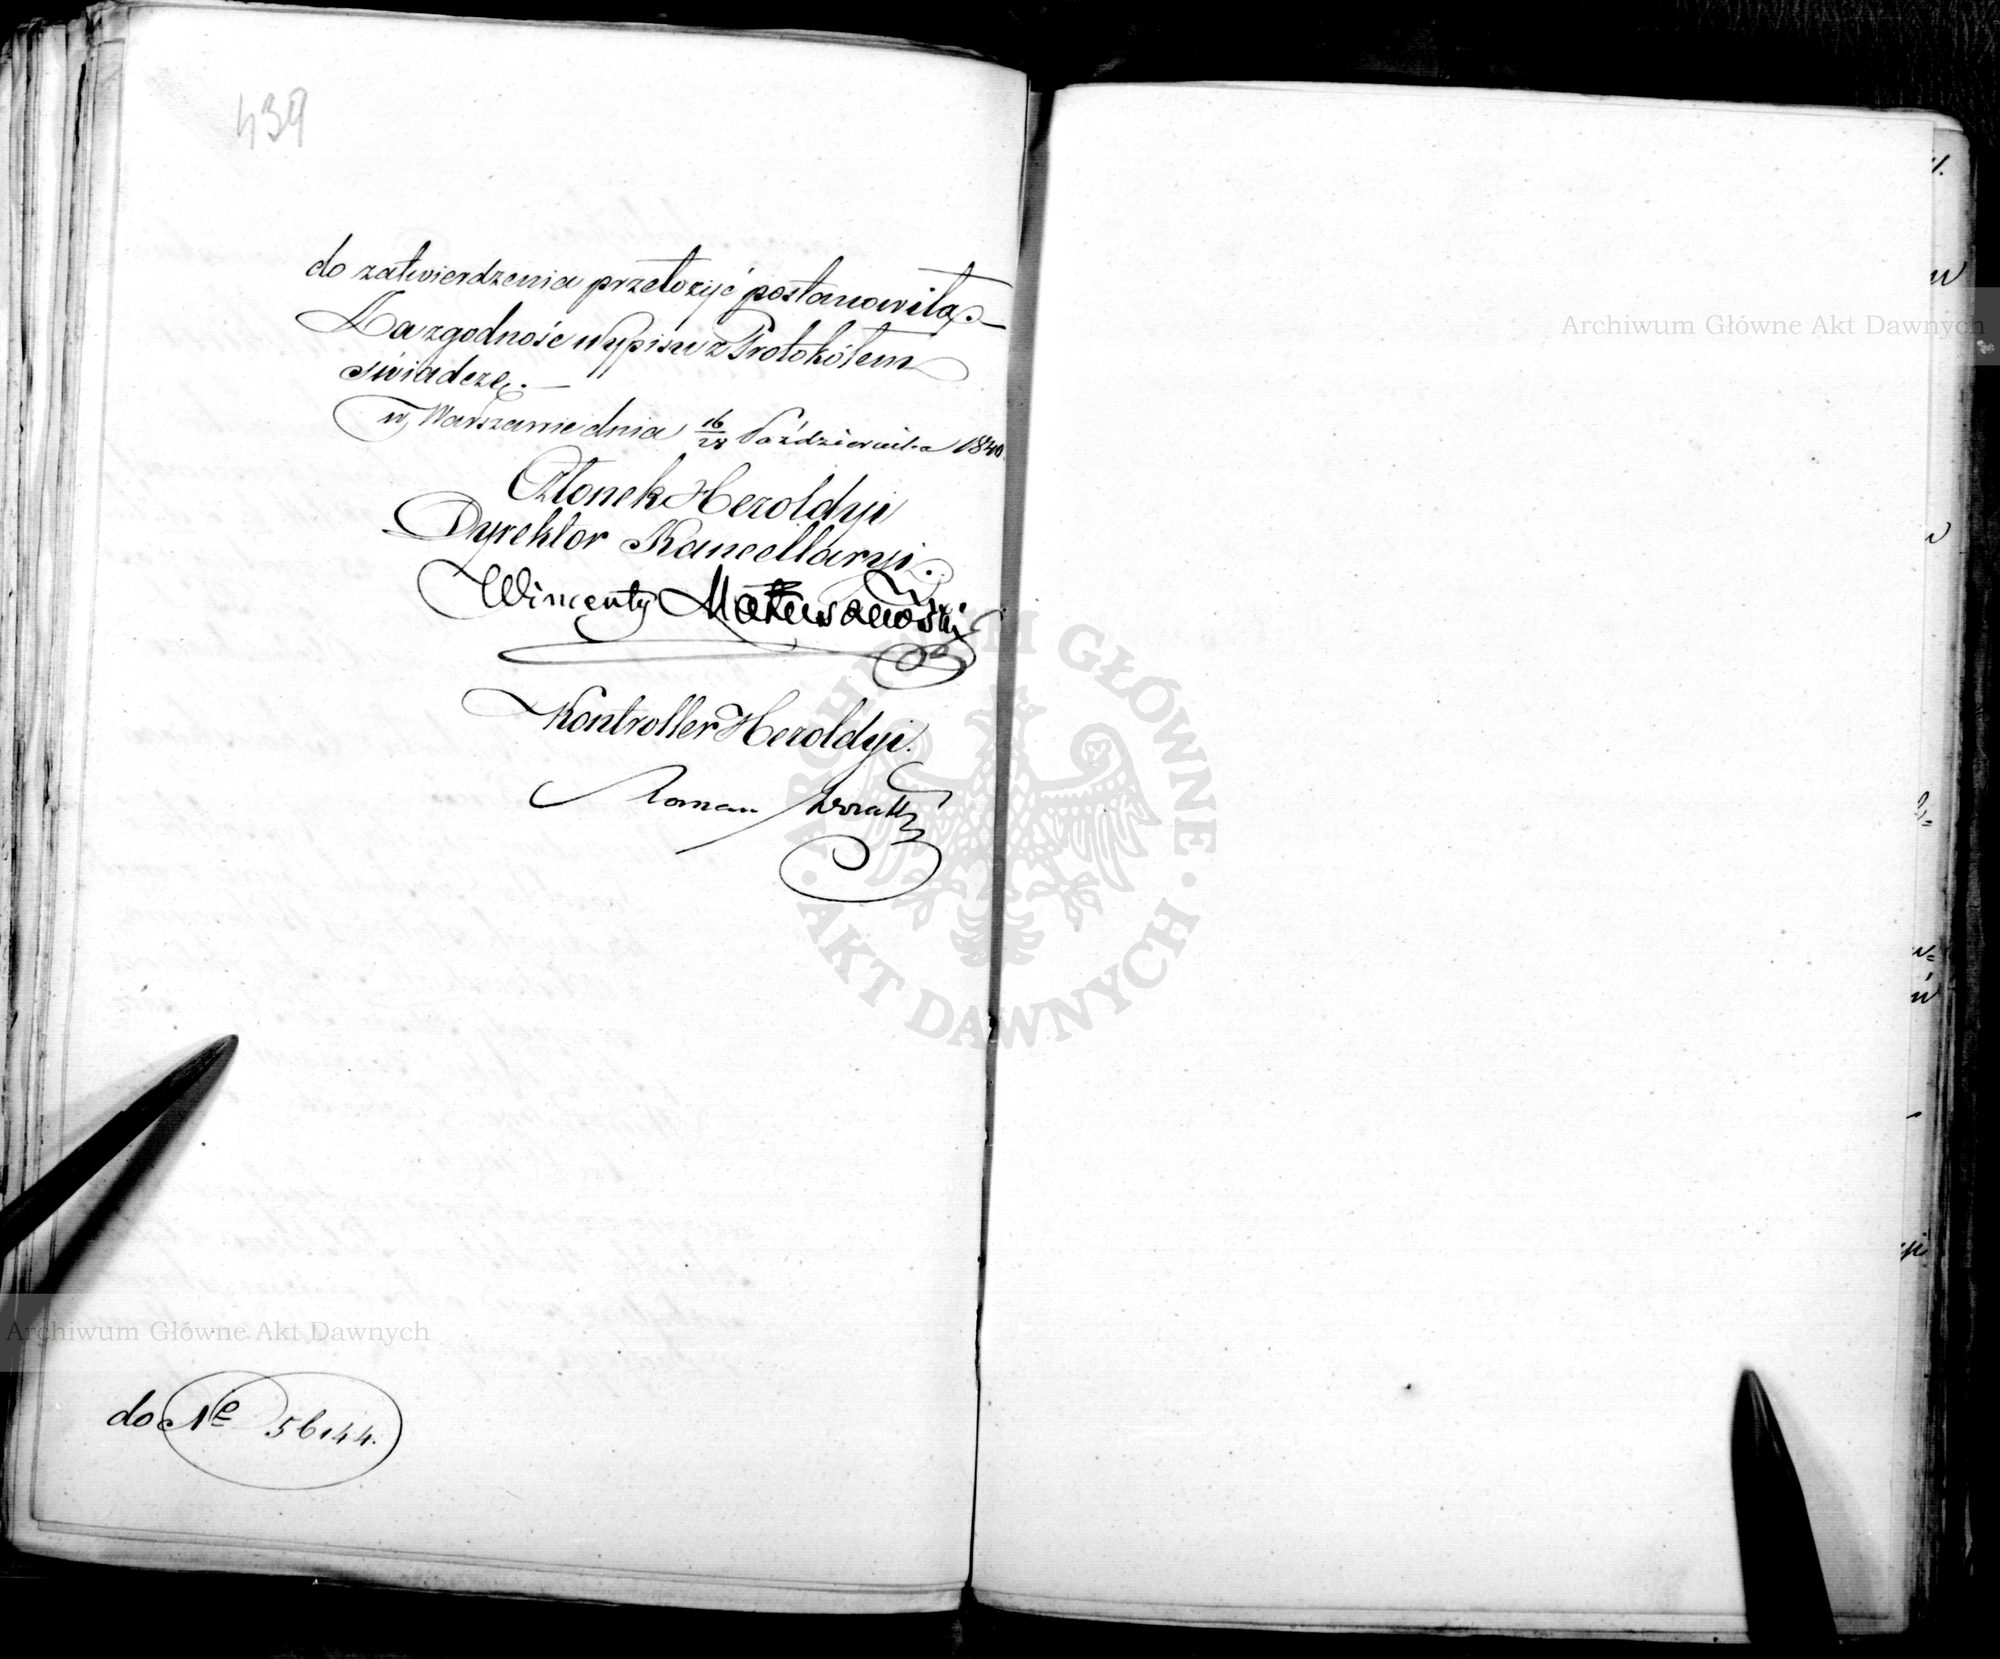 439
do zatwierdzenia przełożyć postanowiła.
Za zgodność wypisu z Protokółem
świadczę.
w Warszawie dnia 16/28 Października 1840.
Członek Heroldyi
Dyrektor Kancellaryi.
Wincenty Matuszewski
Kontroller Heroldyi.
Roman
do No 56144.
Archiwum Główne Akt Dawnych
Archiwum Główne Akt Dawnych
ARCHIWUM GŁÓWNE · AKT DAWNYCH ·